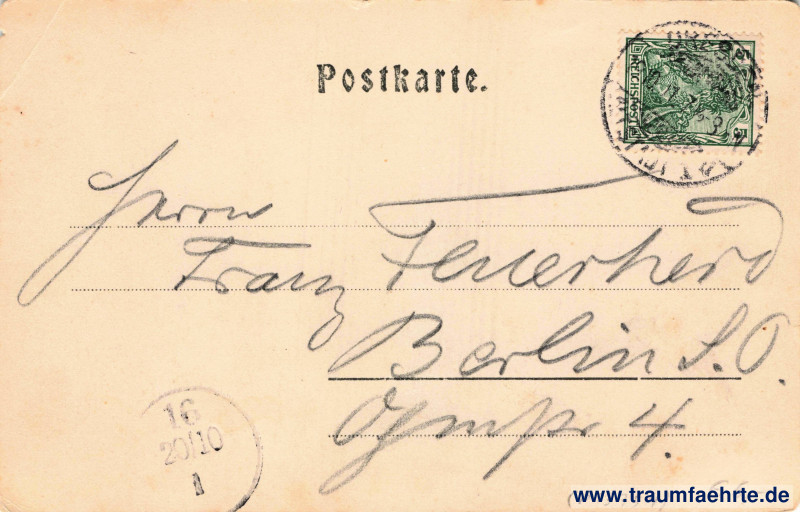 Postkarte.
REICHSPOST
5
5
DRESDEN
Herrn
Franz Feuerherd
Berlin S.O.
4.
16
20/10
1
www.traumfaehrte.de